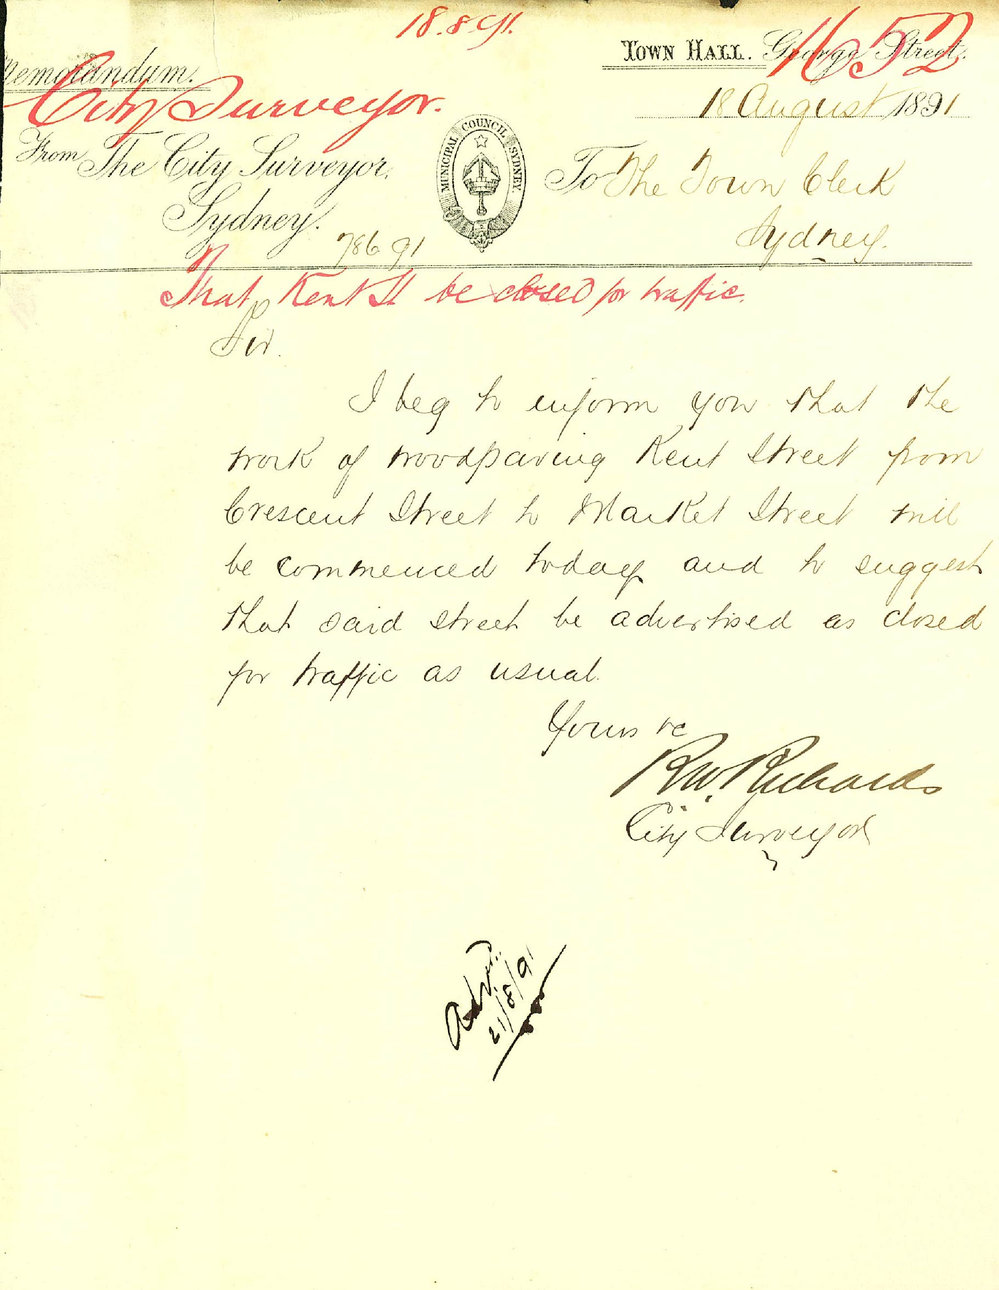 18.8.91.
1652
Town Hall. George Street.
Memorandum.
City Surveyor.
18 August 1891
MUNICIPAL COUNCIL SYDNEY
From The City Surveyor,
To The Town Clerk
Sydney.
Sydney.
786 91
That Kent St be closed for traffic.
Sir.
I beg to inform you that the
work of woodpaving Kent Street from
Crescent Street to Market Street will
be commenced today and to suggest
that said street be advertised as closed
for traffic as usual.
Yours &c
RW. Richards
City Surveyor
Advt.
21/8/91